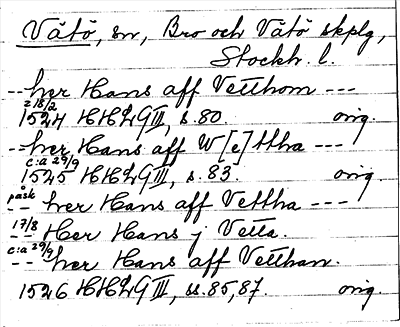 Vätö, sn, Bro och Vätö skplg,
Stockh. l.
-- her Hans aff Vetthom ---
21/8/2
1524 HHLG III, s. 80. orig.
-- her Hans aff W[e]ttha ---
c:a 29/9
1525 HHLG III, s. 83. orig.
påsk
-- her Hans aff Vettha ---
17/8
-- Her Hans j Vetta.
c:a 29/9
-- her Hans aff Vetthan.
1526 HHLG III, ss. 85, 87. orig.